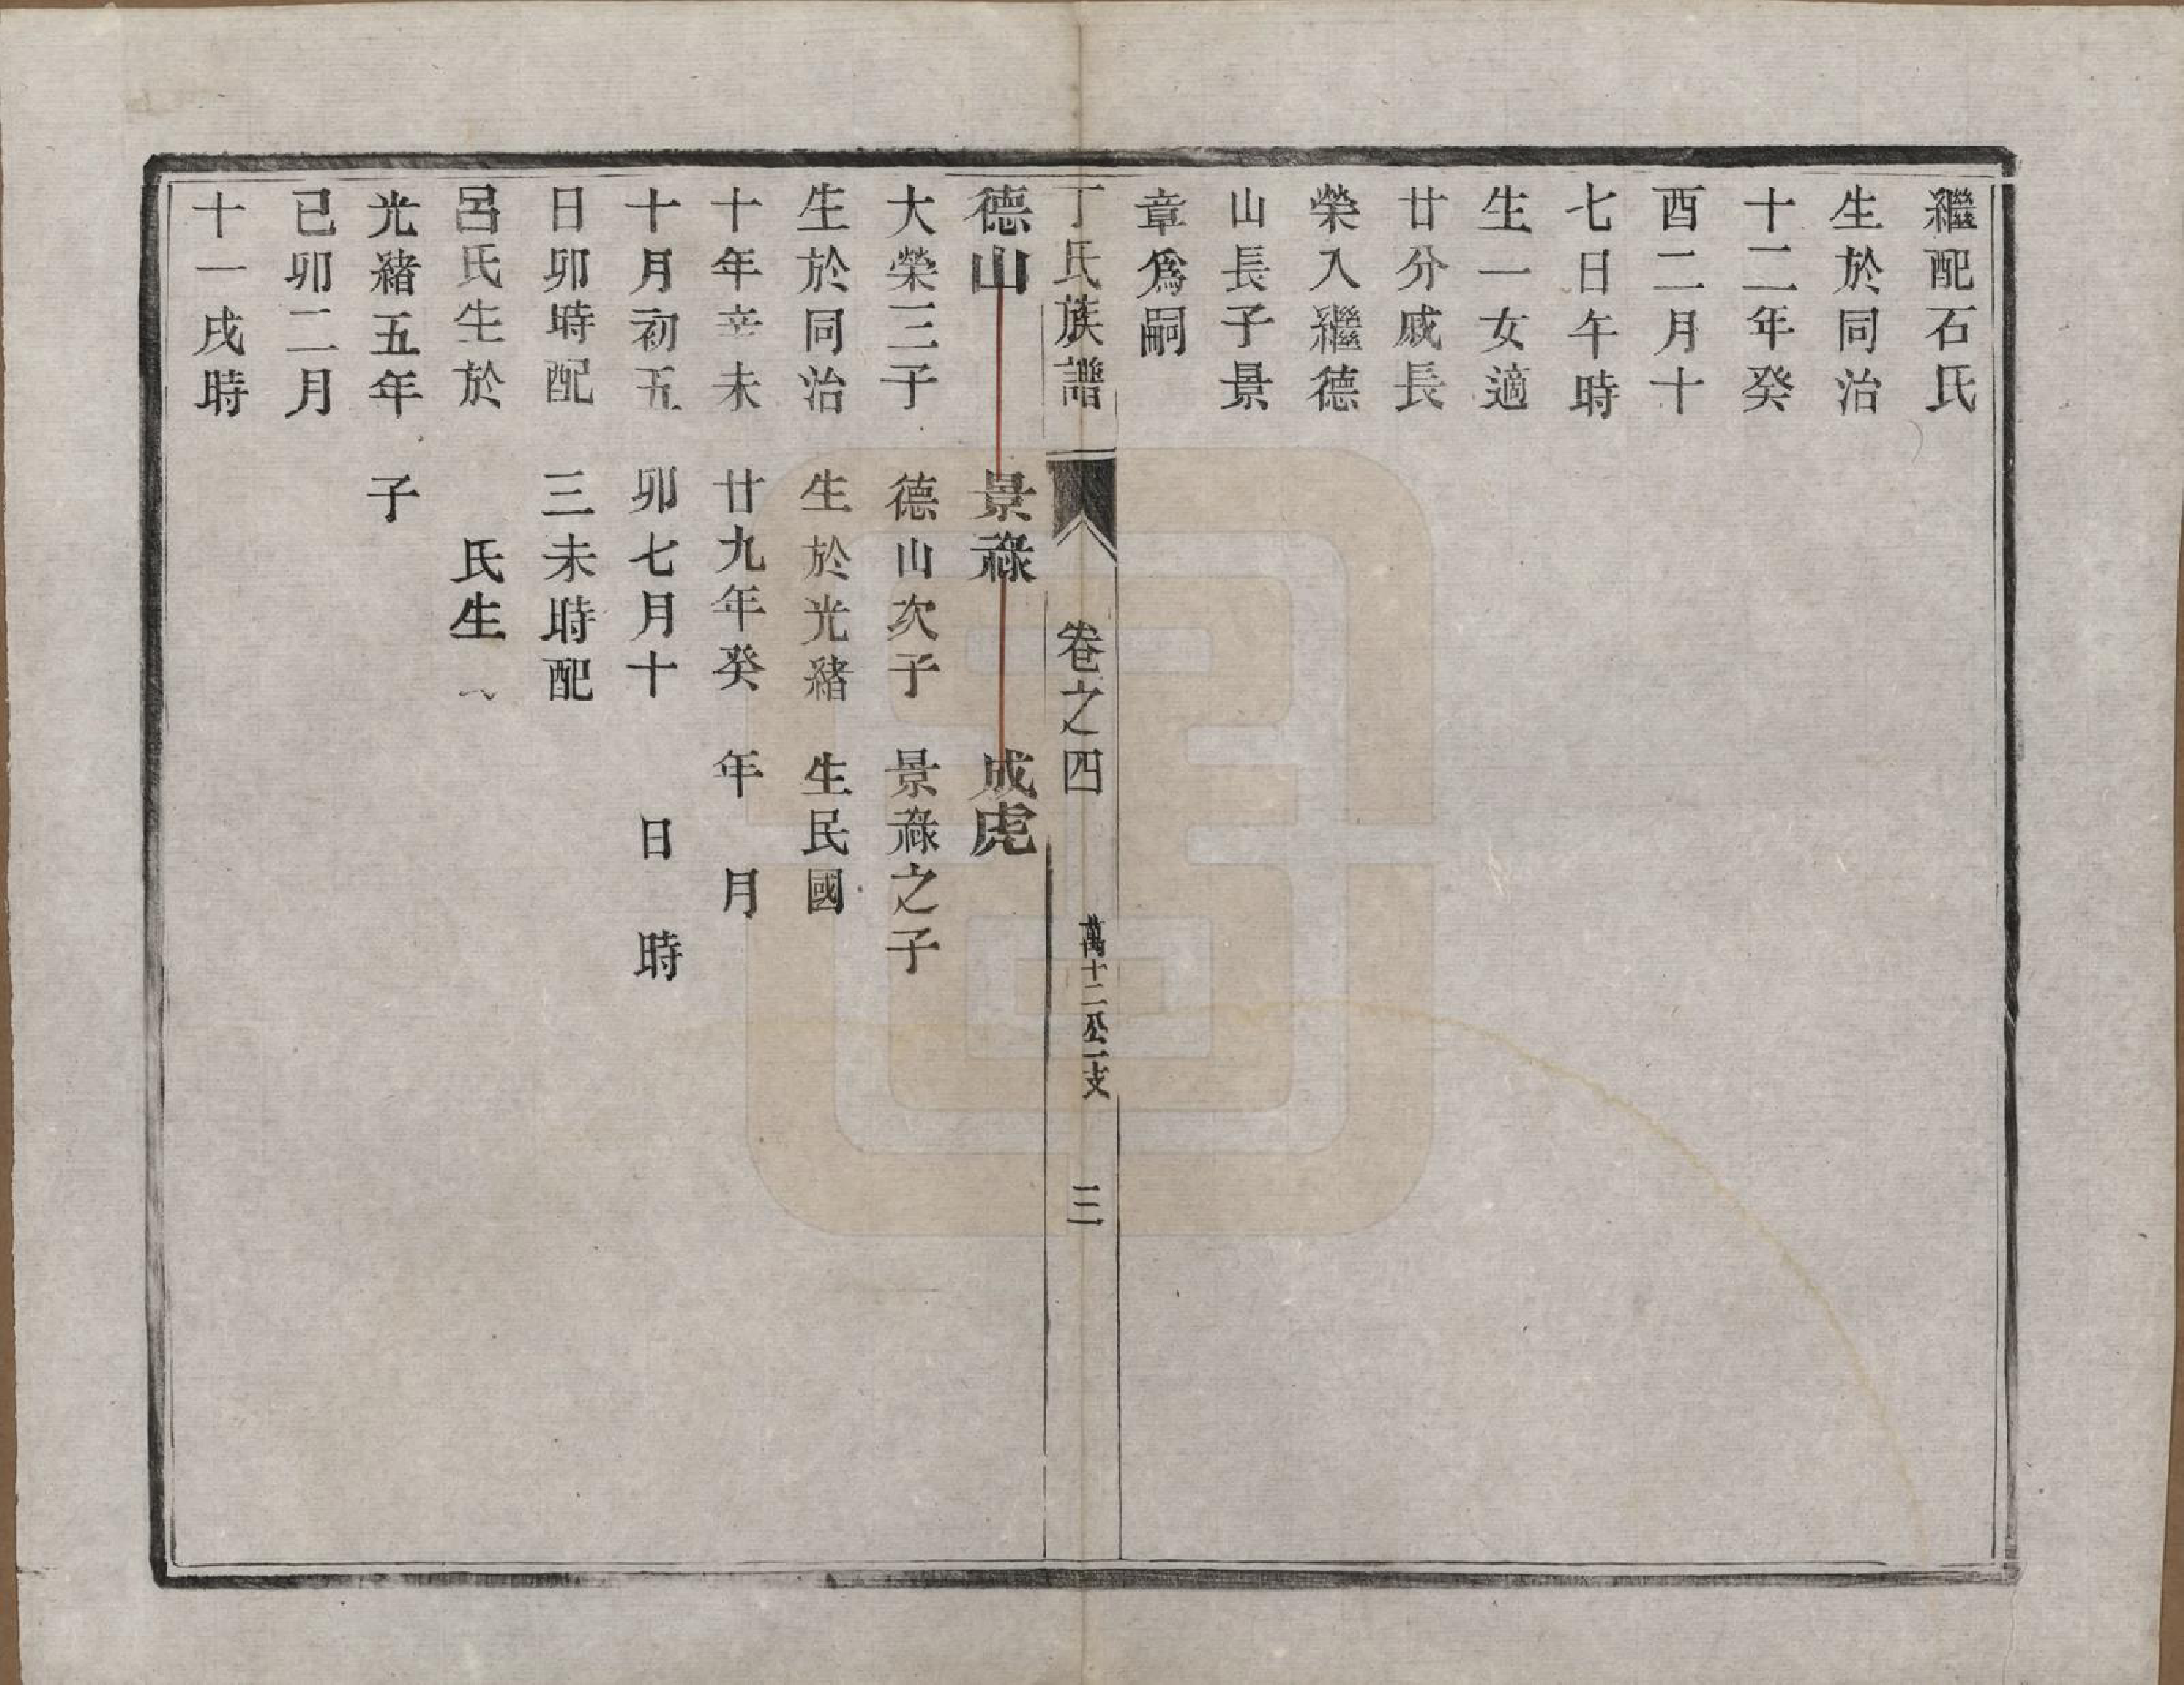 繼配石氏
生於同治
十二年癸
酉二月十
七日午時
生一女適
廿分戚長
榮入繼德
山長子景
章爲嗣
丁氏族譜
卷之四
萬十二公一支
三
德山
大榮三子
生於同治
十年辛未
十月初五
日卯時配
呂氏生於
光緒五年
己卯二月
十一戌時
景祿
德山次子
生於光緒
廿九年癸
卯七月十
三未時配
氏生
子
成虎
景祿之子
生民國
年 月
日 時